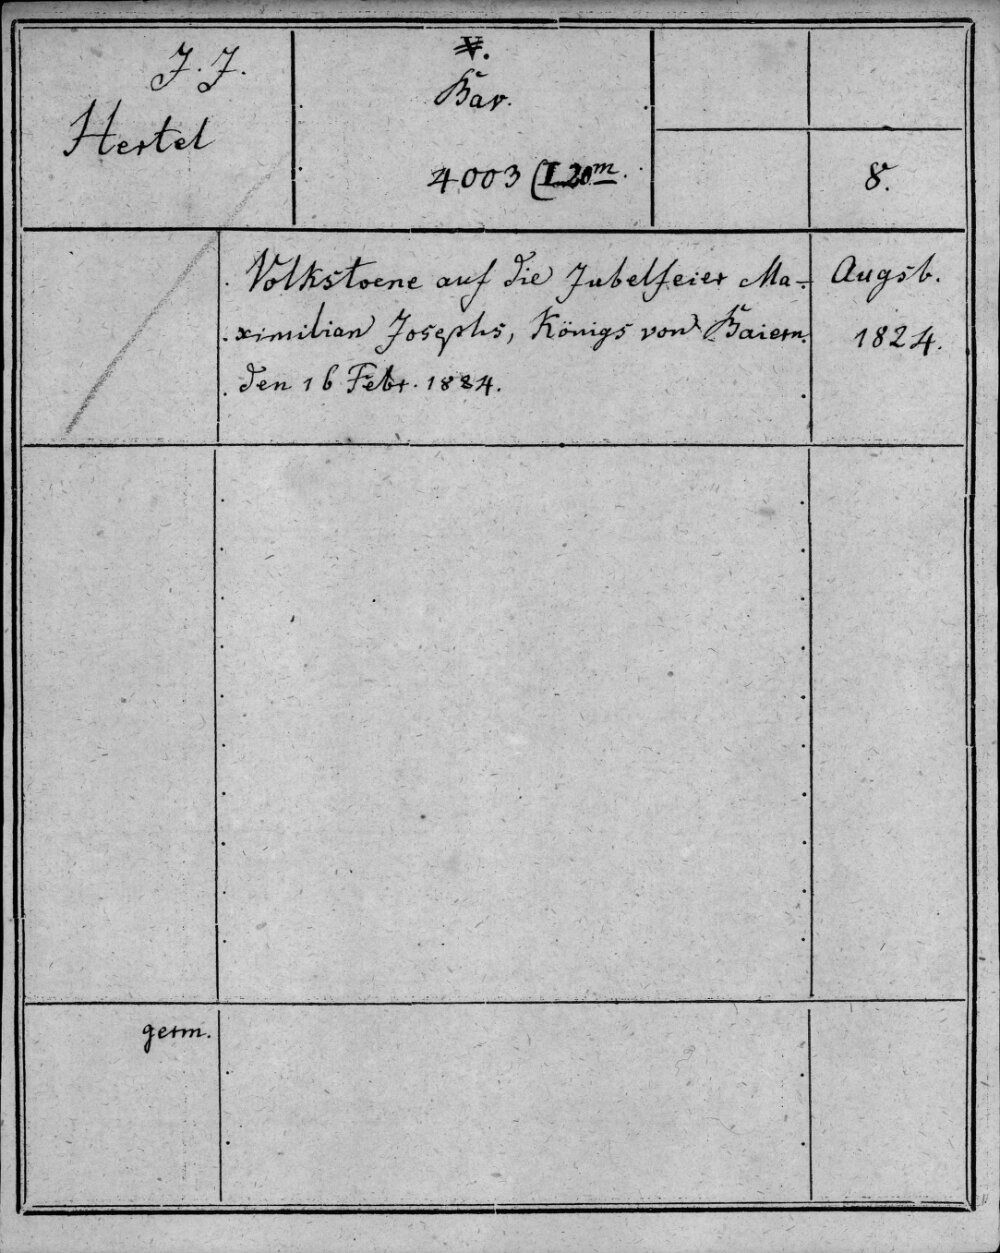 J. J.
Hertel
V.
Bav.
4003 (I 20m.
8.
Volkstoene auf die Jubelfeier Ma-
ximilian Josephs, Königs von Baiern.
den 16 Febr. 1824.
Augsb.
1824.
germ.